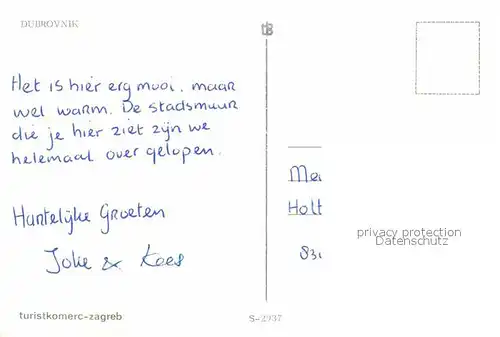 DUBROVNIK
Het is hier erg mooi, maar
wel warm. De stadsmuur
die je hier ziet zijn we
helemaal over gelopen.
Hartelijke Groeten
Joke & Kees
turistkomerc-zagreb
S-2937
Holt
privacy protection
Datenschutz